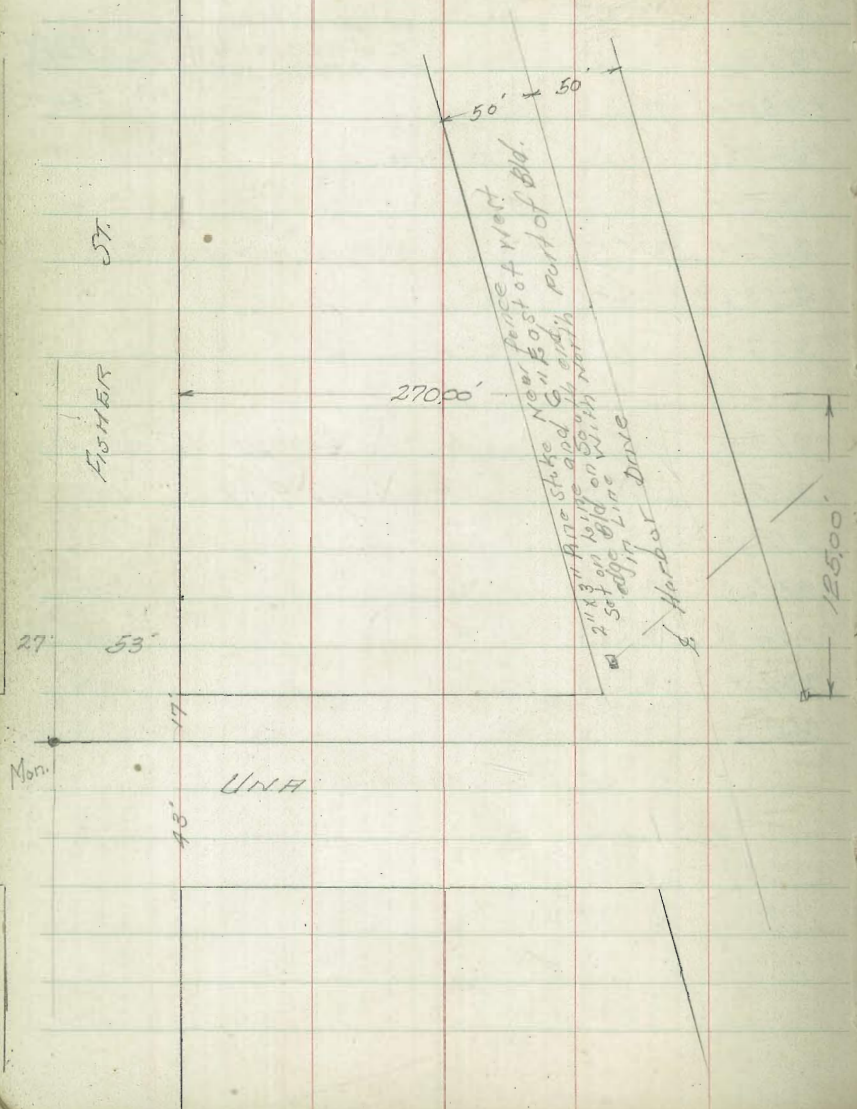 50' 50'
FISHER ST.
270.00'
2"x3" Pine stake near fence west
Set on line and 6" East of
edge Bld on South end part of Bld.
in Line With Nor
℄ Harbor Drive
125.00'
27' 53'
17'
Mon.
UNA
43'